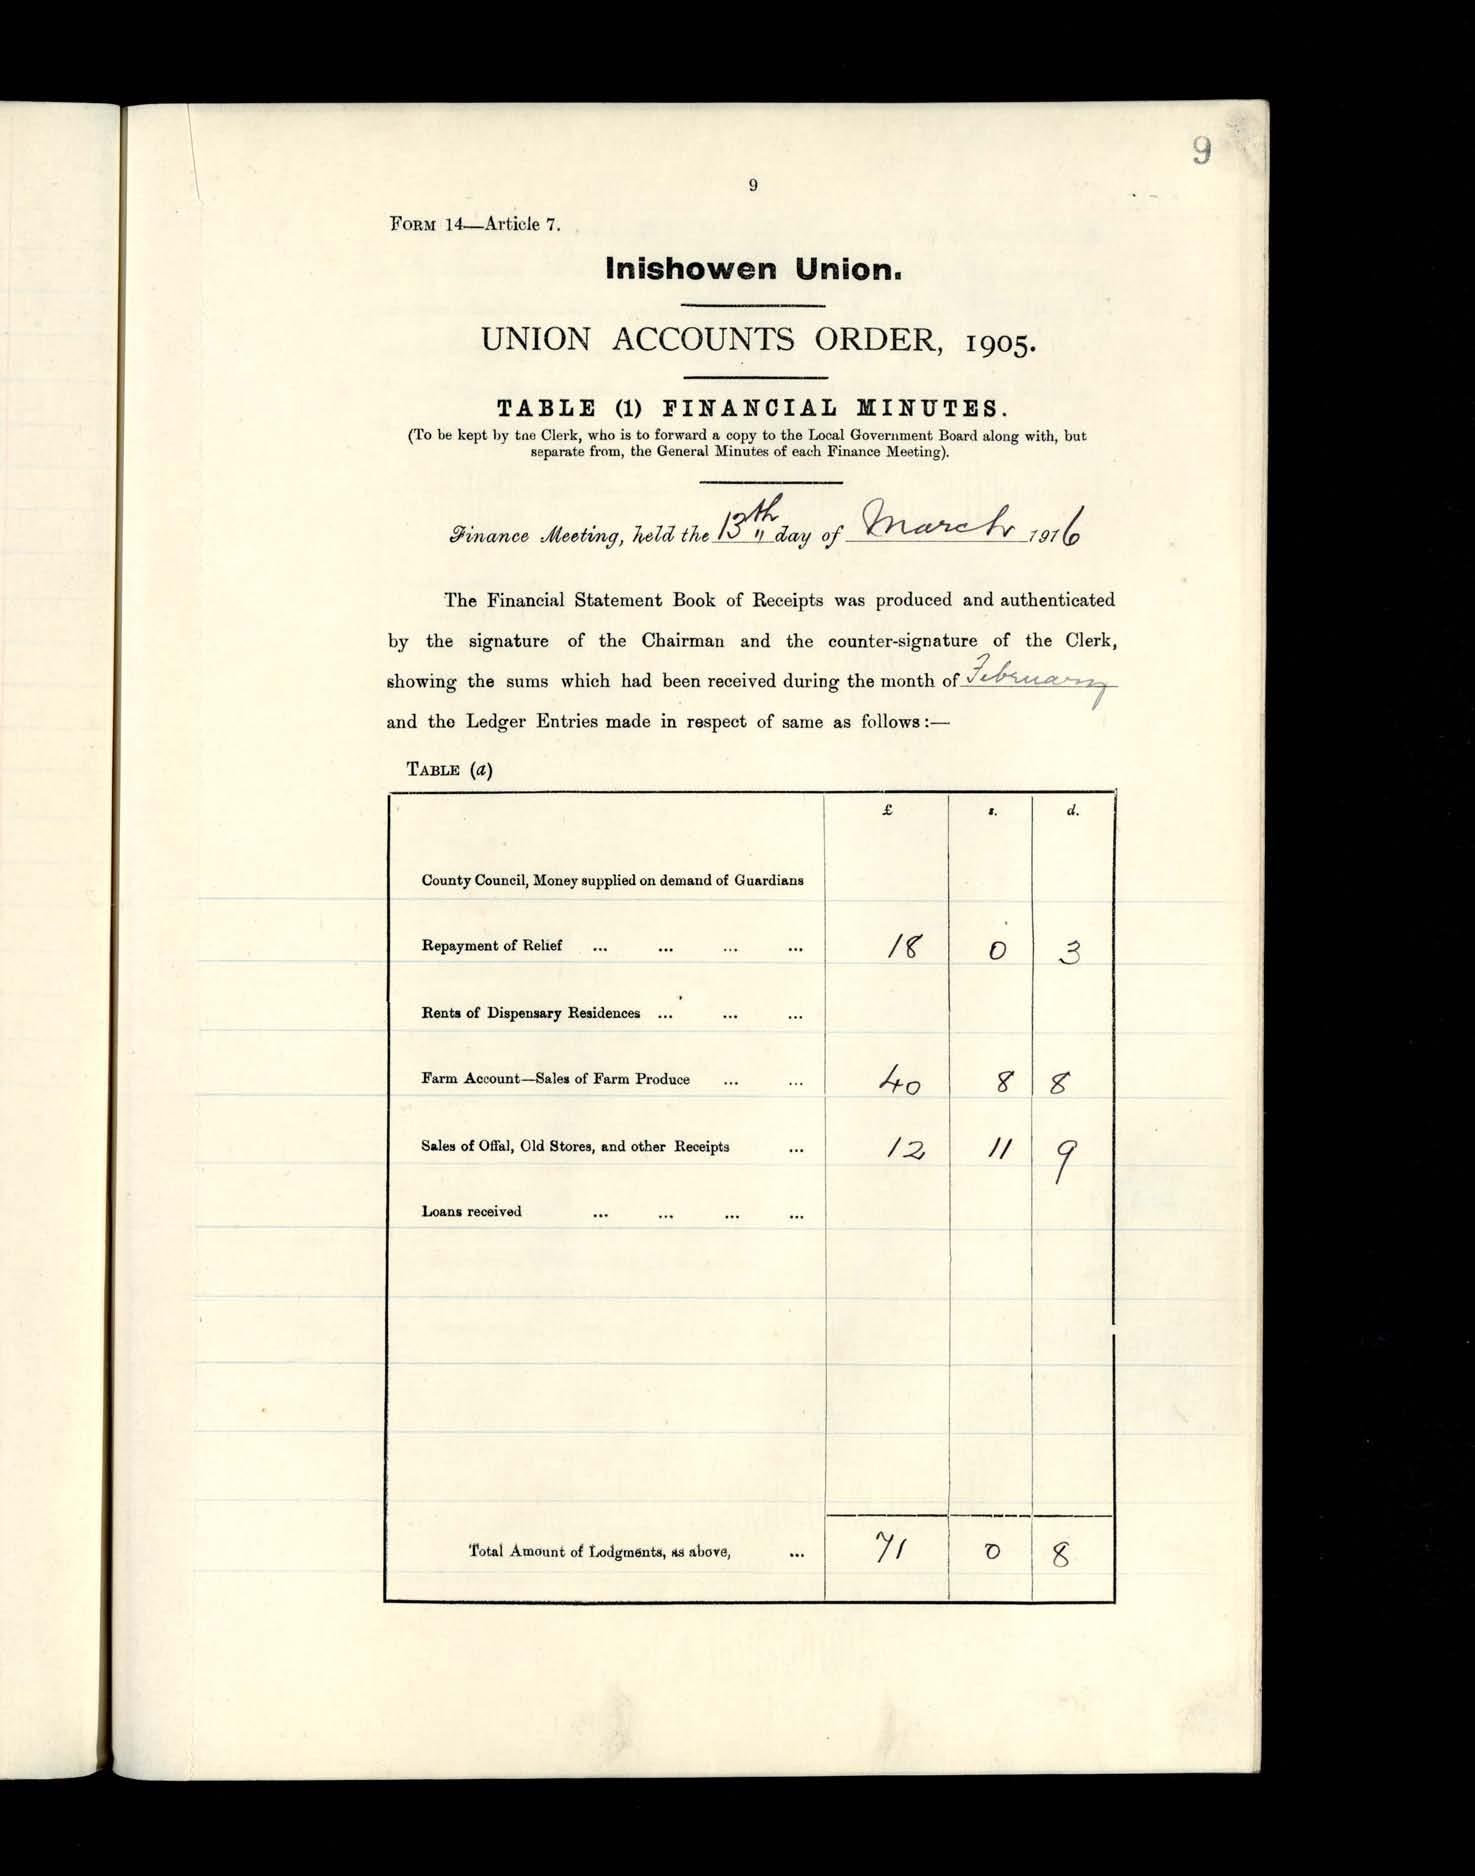 9
9
FORM 14—Article 7.
Inishowen Union.
UNION ACCOUNTS ORDER, 1905.
TABLE (1) FINANCIAL MINUTES.
(To be kept by tne Clerk, who is to forward a copy to the Local Government Board along with, but
separate from, the General Minutes of each Finance Meeting).
Finance Meeting, held the 13th " day of March 1916
The Financial Statement Book of Receipts was produced and authenticated
by the signature of the Chairman and the counter-signature of the Clerk,
showing the sums which had been received during the month of February
and the Ledger Entries made in respect of same as follows:—
TABLE (a)
£ s. d.
County Council, Money supplied on demand of Guardians
Repayment of Relief ... ... ... ... 18 0 3
Rents of Dispensary Residences ... ... ...
Farm Account—Sales of Farm Produce ... ... 40 8 8
Sales of Offal, Old Stores, and other Receipts ... 12 11 9
Loans received ... ... ... ...
Total Amount of Lodgments, as above, ... 71 0 8